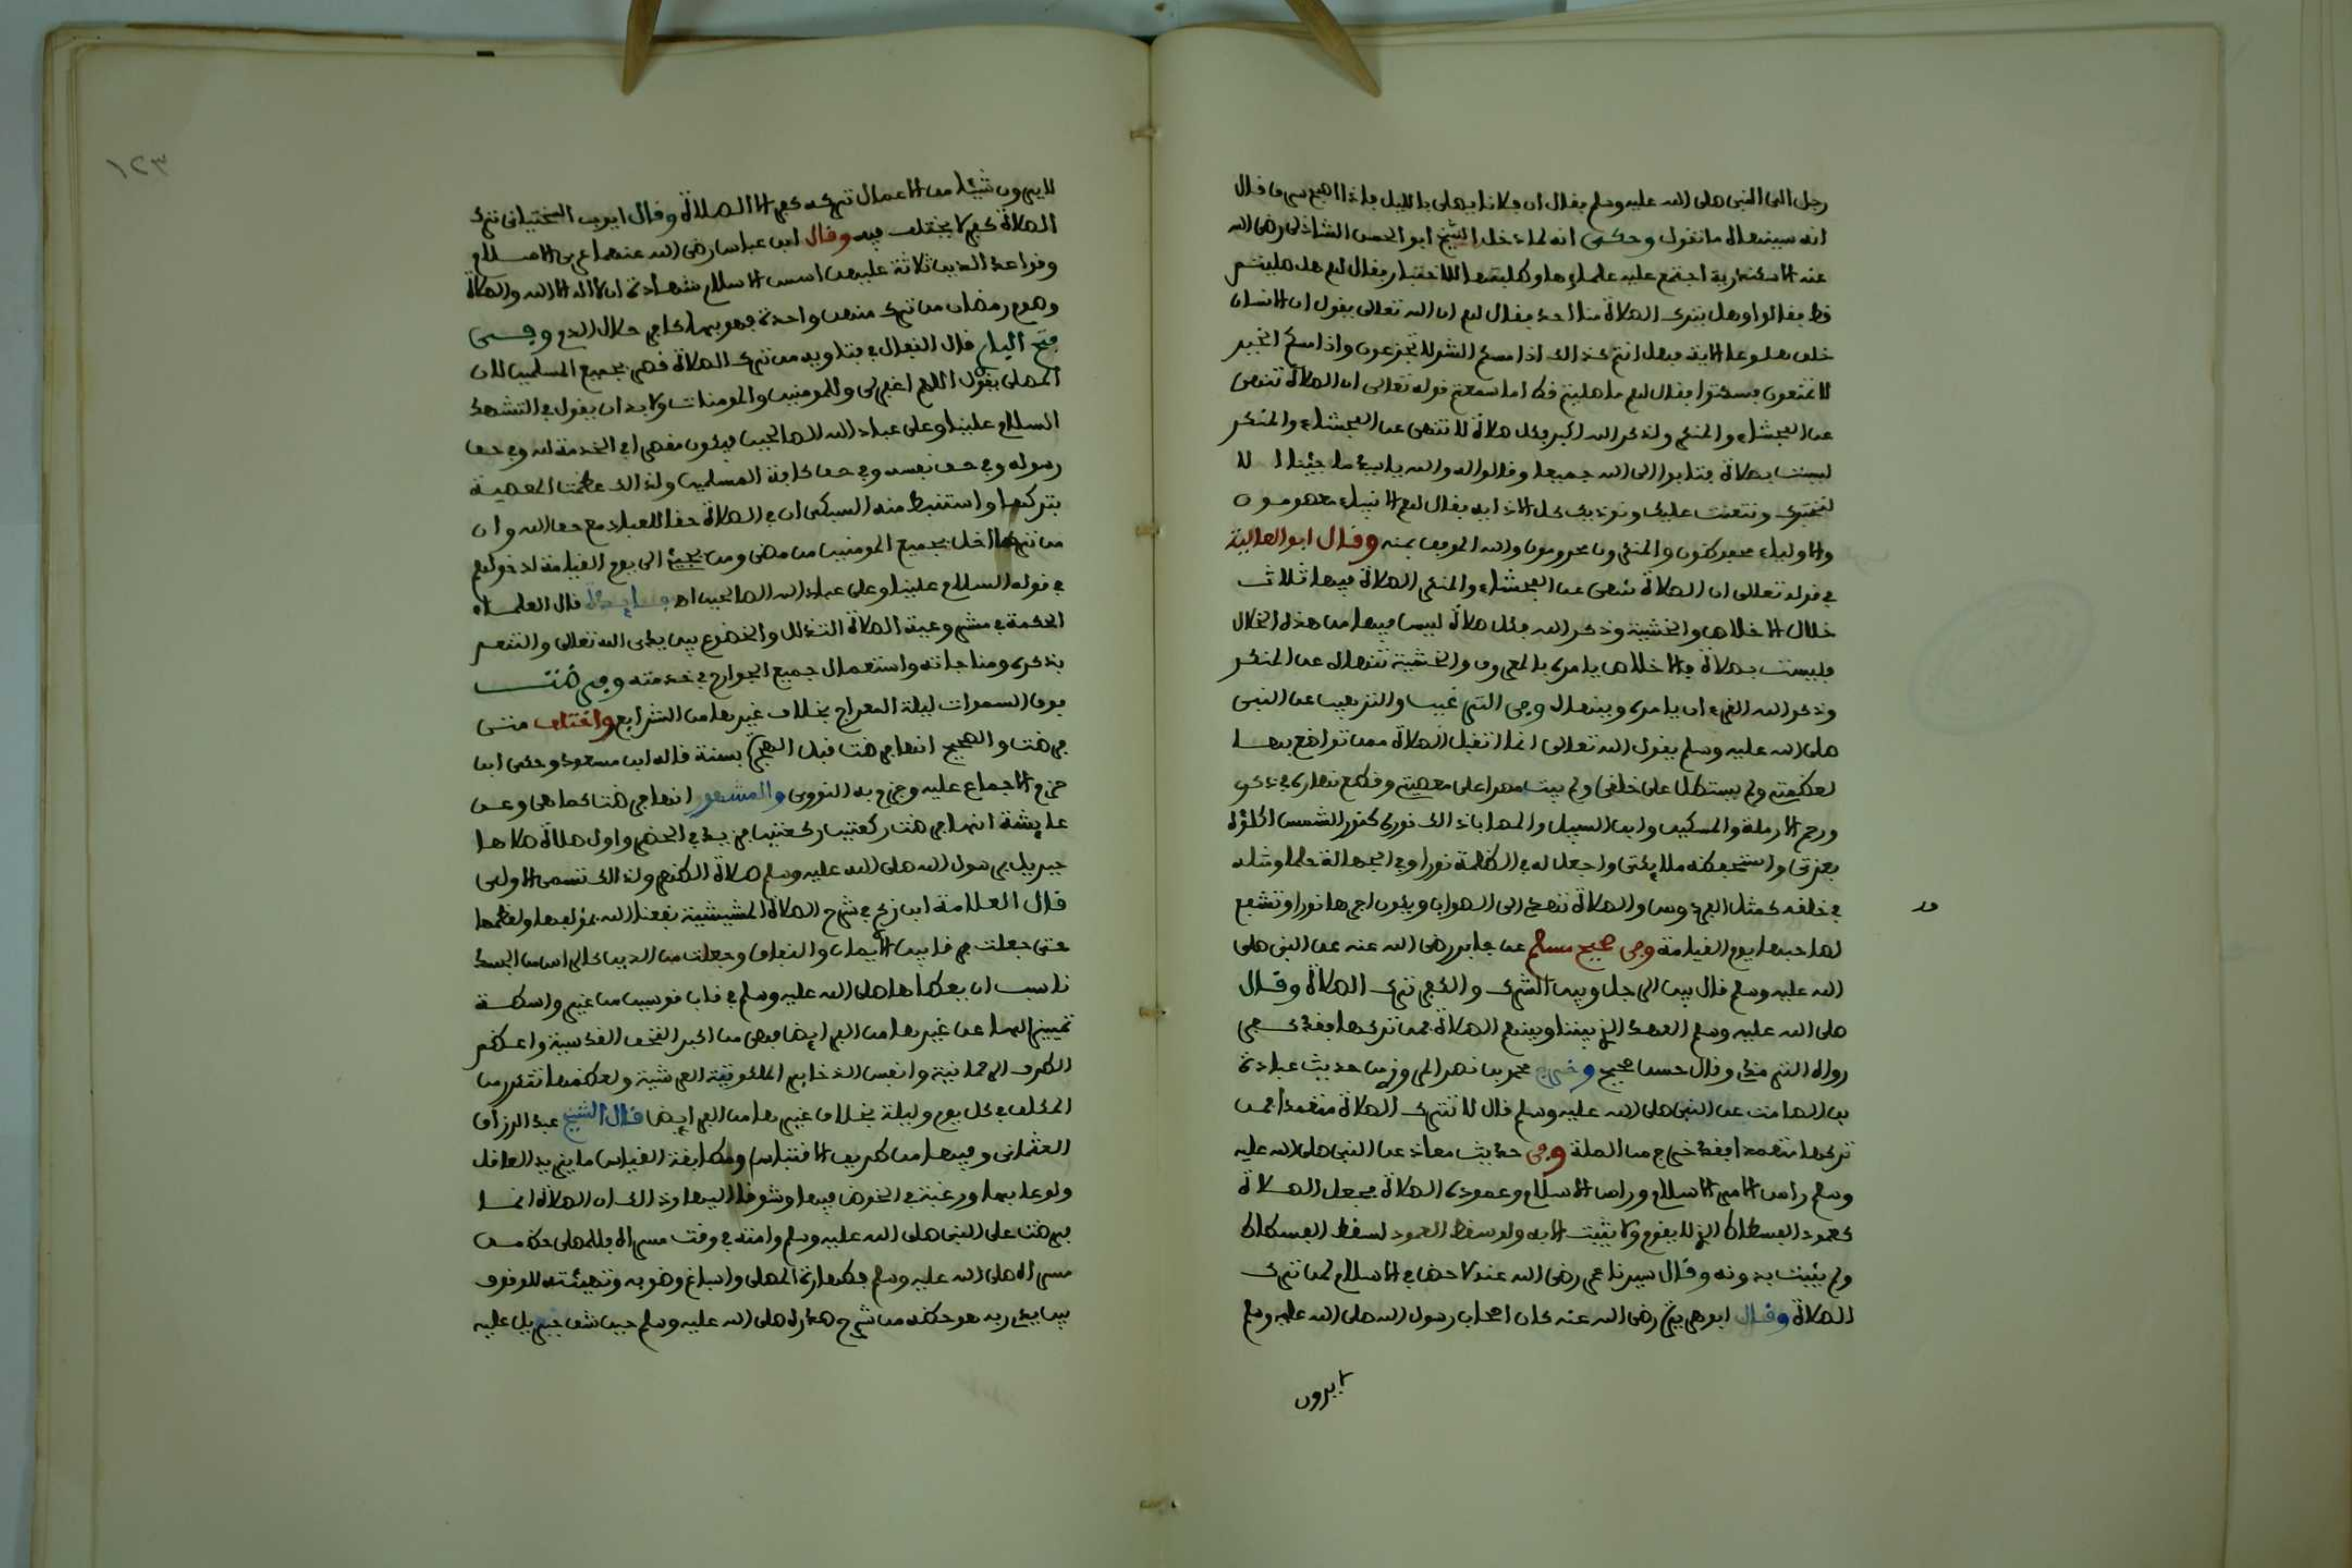 رجل الى النبي صلى الله عليه وسلم فقال ان فلانا يصلي بالليل فاذا اصبح سرق قال
انه سينهاه ما تقول وحكي انه لما دخل الشيخ ابو الحسن الشاذلي رضي الله
عنه الاسكندرية اجتمع عليه علماؤها وطلبتها للاختبار فقال لهم هل صليتم
قط فقالوا وهل يترك الصلاة منا احد فقال لهم ان الله تعالى يقول ان الانسان
خلق هلوعا الاية فهل انتم كذالك اذا مسكم الشر لا تجزعون واذا مسكم الخير
لا تمنعون فسكتوا فقال لهم ما صليتم قط اما سمعتم قوله تعالى ان الصلاة تنهى
عن الفحشاء والمنكر ولذكر الله اكبر فكل صلاة لا تنهى عن الفحشاء والمنكر
ليست بصلاة فتابوا الى الله جميعا وقالوا له والله يا سيدي ما جئنا الا
لنختبرك ونتعنت عليك ونوذيك كل الاذاية فقال لهم الانبياء معصومون
والاولياء محفوظون والمنكرون محرومون والله الموفق بمنه وقال ابو العالية
في قوله تعالى ان الصلاة تنهى عن الفحشاء والمنكر الصلاة فيها ثلاث
خلال الاخلاص والخشية وذكر الله فكل صلاة ليس فيها من هذه الخلال
فليست بصلاة فالاخلاص يامره بالمعروف والخشية تنهاه عن المنكر
وذكر الله القرءان يامره وينهاه وفي الترغيب والترهيب عن النبي
صلى الله عليه وسلم يقول الله تعالى انما اتقبل الصلاة ممن تواضع بها
لعظمتي ولم يستطل على خلقي ولم يبت مصرا على معصيتي وقطع نهاره في ذكري
ورحم الارملة والمسكين وابن السبيل والمصاب ذالك نوره كنور الشمس اكلؤه
بعزتي واستحفظه ملائكتي واجعل له في الظلمة نورا وفي الجهالة حلما ومثله
في خلقي كمثل الفردوس والصلاة تصعد الى الصواب ويكون اجرها نورا وتشفع
لصاحبها يوم القيامة وفي صحيح مسلم عن جابر رضي الله عنه عن النبي صلى
الله عليه وسلم قال بين الرجل وبين الشرك والكفر ترك الصلاة وقال
صلى الله عليه وسلم العهد الذي بيننا وبينهم الصلاة فمن تركها فقد كفر
رواه الترمذي وقال حسن صحيح وخرج محمد بن نصر المروزي من حديث عبادة
بن الصامت عن النبي صلى الله عليه وسلم قال لا تترك الصلاة متعمدا فمن
تركها متعمدا فقد خرج من الملة وفي حديث معاذ عن النبي صلى الله عليه
وسلم راس الامر الاسلام وراس الاسلام وعموده الصلاة فجعل الصلاة
كعمود الفسطاط الذي لا يقوم ولا يثبت الا به ولو سقط العمود لسقط الفسطاط
ولم يثبت بدونه وقال سيدنا عمر رضي الله عنه لا حظ في الاسلام لمن ترك
الصلاة وقال ابو هريرة رضي الله عنه كان اصحاب رسول الله صلى الله عليه وسلم
لا يرون
١٢٣
لا يرون شيئا من الاعمال تركه كفر الا الصلاة وقال ايوب السختياني ترك
الصلاة كفر لا يختلف فيه وقال ابن عباس رضي الله عنهما عرى الاسلام
وقواعد الدين ثلاثة عليهن اسس الاسلام شهادة ان لا اله الا الله والصلاة
وصوم رمضان من ترك منهن واحدة فهو بها كافر حلال الدم وفي
فتح الباري قال القفال في فتاويه من ترك الصلاة فهي بجميع المسلمين لان
المصلي يقول اللهم اغفر لي وللمومنين والمومنات ولا بد ان يقول في التشهد
السلام علينا وعلى عباد الله الصالحين فيكون مقصرا في الخدمة لله وفي حق
رسوله وفي حق نفسه وفي حق كافة المسلمين ولذالك عظمت المعصية
بتركها واستنبط منه السبكي ان في الصلاة حقا للعباد مع حق الله وان
من تركها اخل بجميع المومنين من مضى ومن يجيء الى يوم القيامة لدخولهم
في قوله السلام علينا وعلى عباد الله الصالحين اهـ قال العلماء
الحكمة في مشروعية الصلاة التذلل والخضوع بين يدي الله تعالى والتنعم
بذكره ومناجاته واستعمال جميع الجوارح في خدمته وفرضت
فوق السموات ليلة المعراج بخلاف غيرها من الشرايع واختلف متى
فرضت والصحيح انها فرضت قبل الهجرة بسنة قاله ابن مسعود وحكى ابن
حزم الاجماع عليه وجزم به النووي والمشهور انها فرضت كما هي وعن
عايشة انها فرضت ركعتين ركعتين فزيد في الحضر واول صلاة صلاها
جبريل برسول الله صلى الله عليه وسلم صلاة الظهر ولذالك تسمى الاولى
قال العلامة ابن زكري في شرح الصلاة المشيشية نفعنا الله بمؤلفها ولعظمها
حتى جعلت فرقا بين الايمان والنفاق وجعلت من الدين كالراس من الجسد
ناسب ان يعطاها صلى الله عليه وسلم في قاب قوسين من غير واسطة
تمييزا لها عن غيرها من الفرايض فهي من اكبر التحف القدسية واعظم
الطرف الرحمانية وانفس الذخاير الملكوتية العرشية ولعظمها تتكرر من
المكلف في كل يوم وليلة بخلاف غيرها من الفرايض قال الشيخ عبد الرزاق
العثماني وفيها من طريق الاقتباس ومطابقة القياس ما يزيد العاقل
ولوعا بها ورغبة في الخوض فيها وشوقا اليها وذالك ان الصلاة انما
فرضت على النبي صلى الله عليه وسلم وامته في وقت مسراه فللمصلي حظ من
مسراه صلى الله عليه وسلم فطهارة المصلي واسباغ وضوئه وتهيئته للوقوف
بين يدي ربه هو حظه من شرح صدره صلى الله عليه وسلم حين شق جبريل عليه